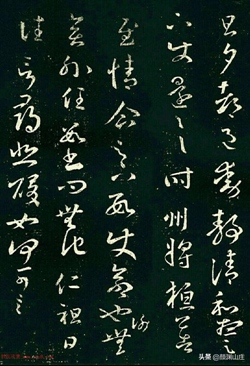 旦夕都邑動靜清和想足
下使還一一時州將桓公告
慰情企足下數使命也謝無
奕外任數書問無他仁祖日
往言尋悲酸如何可言
头条 @颜渊山庄